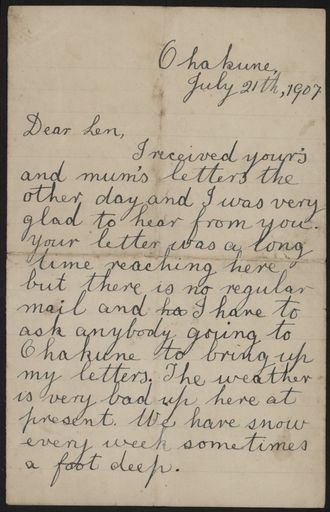 Ohakune,
July 21th, 1907
Dear Len,
I received your's
and mum's letters the
other day and I was very
glad to hear from you.
Your letter was a long
time reaching here
but there is no regular
mail and ha I have to
ask anybody going to
Ohakune to bring up
my letters. The weather
is very bad up here at
present. We have snow
every week sometimes
a foot deep.